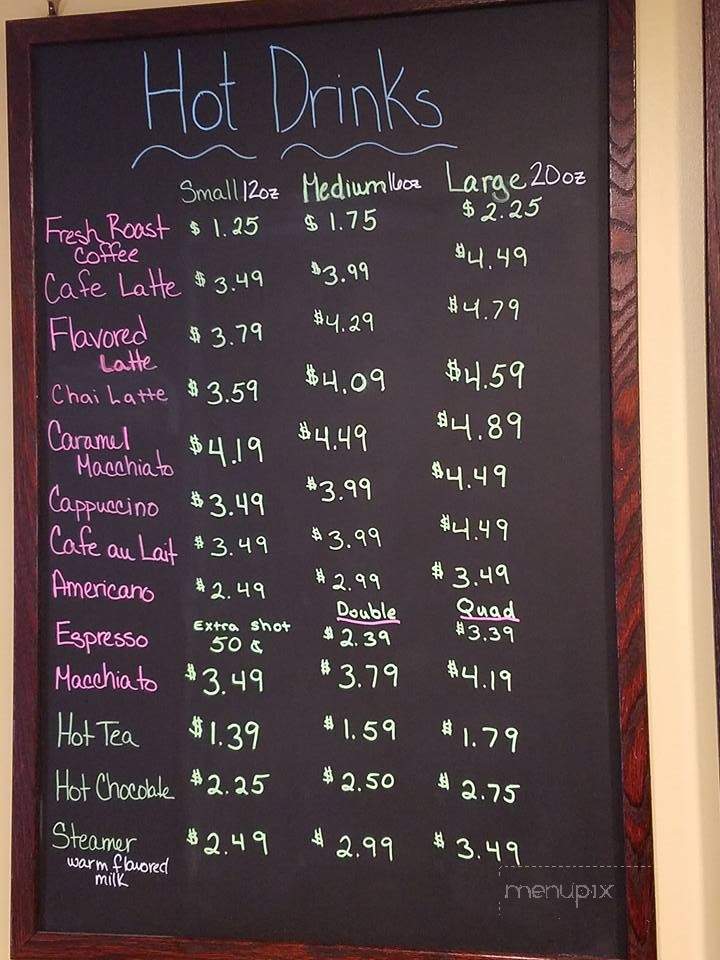 Hot Drinks
Small 12oz Medium 16oz Large 20oz
Fresh Roast Coffee $1.25 $1.75 $2.25
Cafe Latte $3.49 $3.99 $4.49
Flavored Latte $3.79 $4.29 $4.79
Chai Latte $3.59 $4.09 $4.59
Caramel Macchiato $4.19 $4.49 $4.89
Cappuccino $3.49 $3.99 $4.49
Cafe au Lait $3.49 $3.99 $4.49
Americano $2.49 $2.99 $3.49
Double Quad
Espresso Extra shot 50¢ $2.39 $3.39
Macchiato $3.49 $3.79 $4.19
Hot Tea $1.39 $1.59 $1.79
Hot Chocolate $2.25 $2.50 $2.75
Steamer $2.49 $2.99 $3.49
warm flavored
milk
menupix